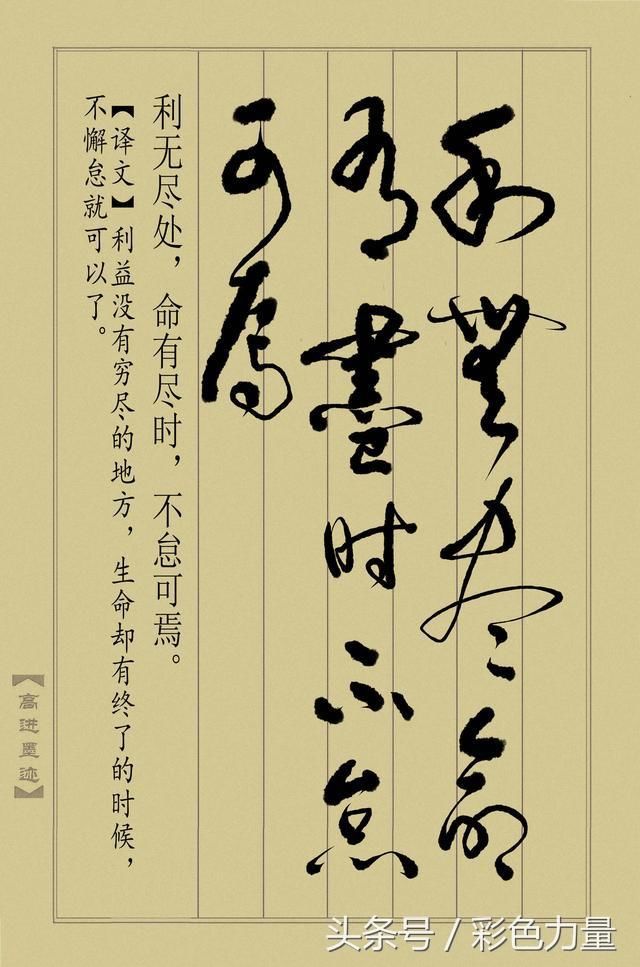 利無尽命
有盡时不怠
可焉
利无尽处，命有尽时，不怠可焉。
【译文】利益没有穷尽的地方，生命却有终了的时候，
不懈怠就可以了。
【高进墨迹】
头条号 / 彩色力量